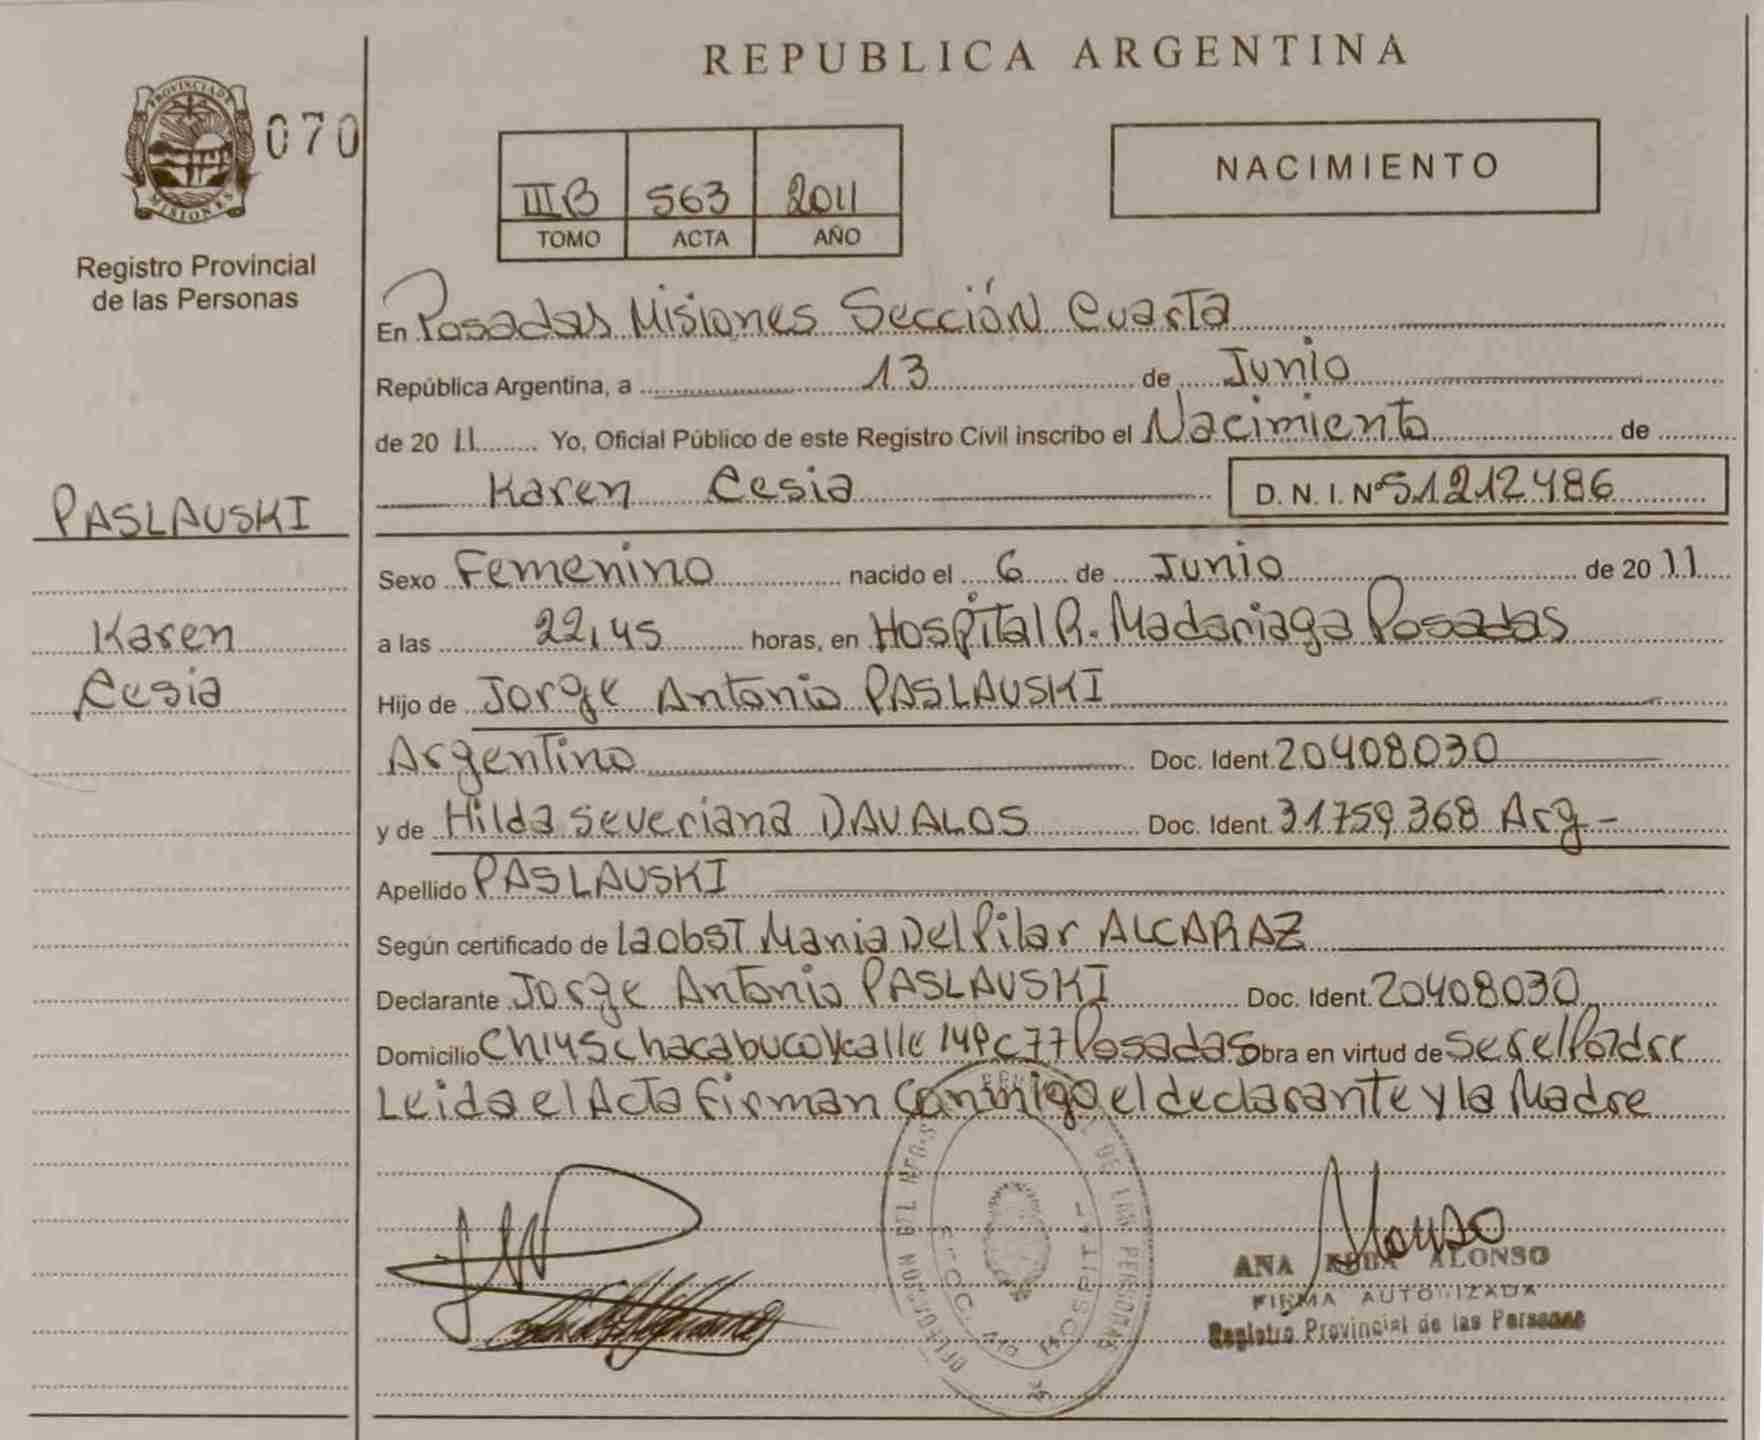 REPUBLICA ARGENTINA
PROVINCIA DE MISIONES
070
Registro Provincial
de las Personas
NACIMIENTO
III B 563 2011
TOMO ACTA AÑO
En Posadas Misiones Sección Cuarta
República Argentina, a 13 de Junio
de 20 11 Yo, Oficial Público de este Registro Civil inscribo el Nacimiento de
Karen Cesia D.N.I. Nº 51212486
PASLAUSKI
Karen
Cesia
Sexo Femenino nacido el 6 de Junio de 20 11
a las 22,45 horas, en Hospital R. Madariaga Posadas
Hijo de Jorge Antonio PASLAUSKI
Argentino Doc. Ident. 20408030
y de Hilda Severiana DAVALOS Doc. Ident. 31759368 Arg-
Apellido PASLAUSKI
Según certificado de la obst Maria Del Pilar ALCARAZ
Declarante Jorge Antonio PASLAUSKI Doc. Ident. 20408030
Domicilio Ch145 chacabuco y calle 149 c77 Posadas Obra en virtud de ser el Padre
Leida el Acta firman conmigo el declarante y la Madre
Alonso
ANA ALONSO
FIRMA AUTORIZADA
Registro Provincial de las Personas